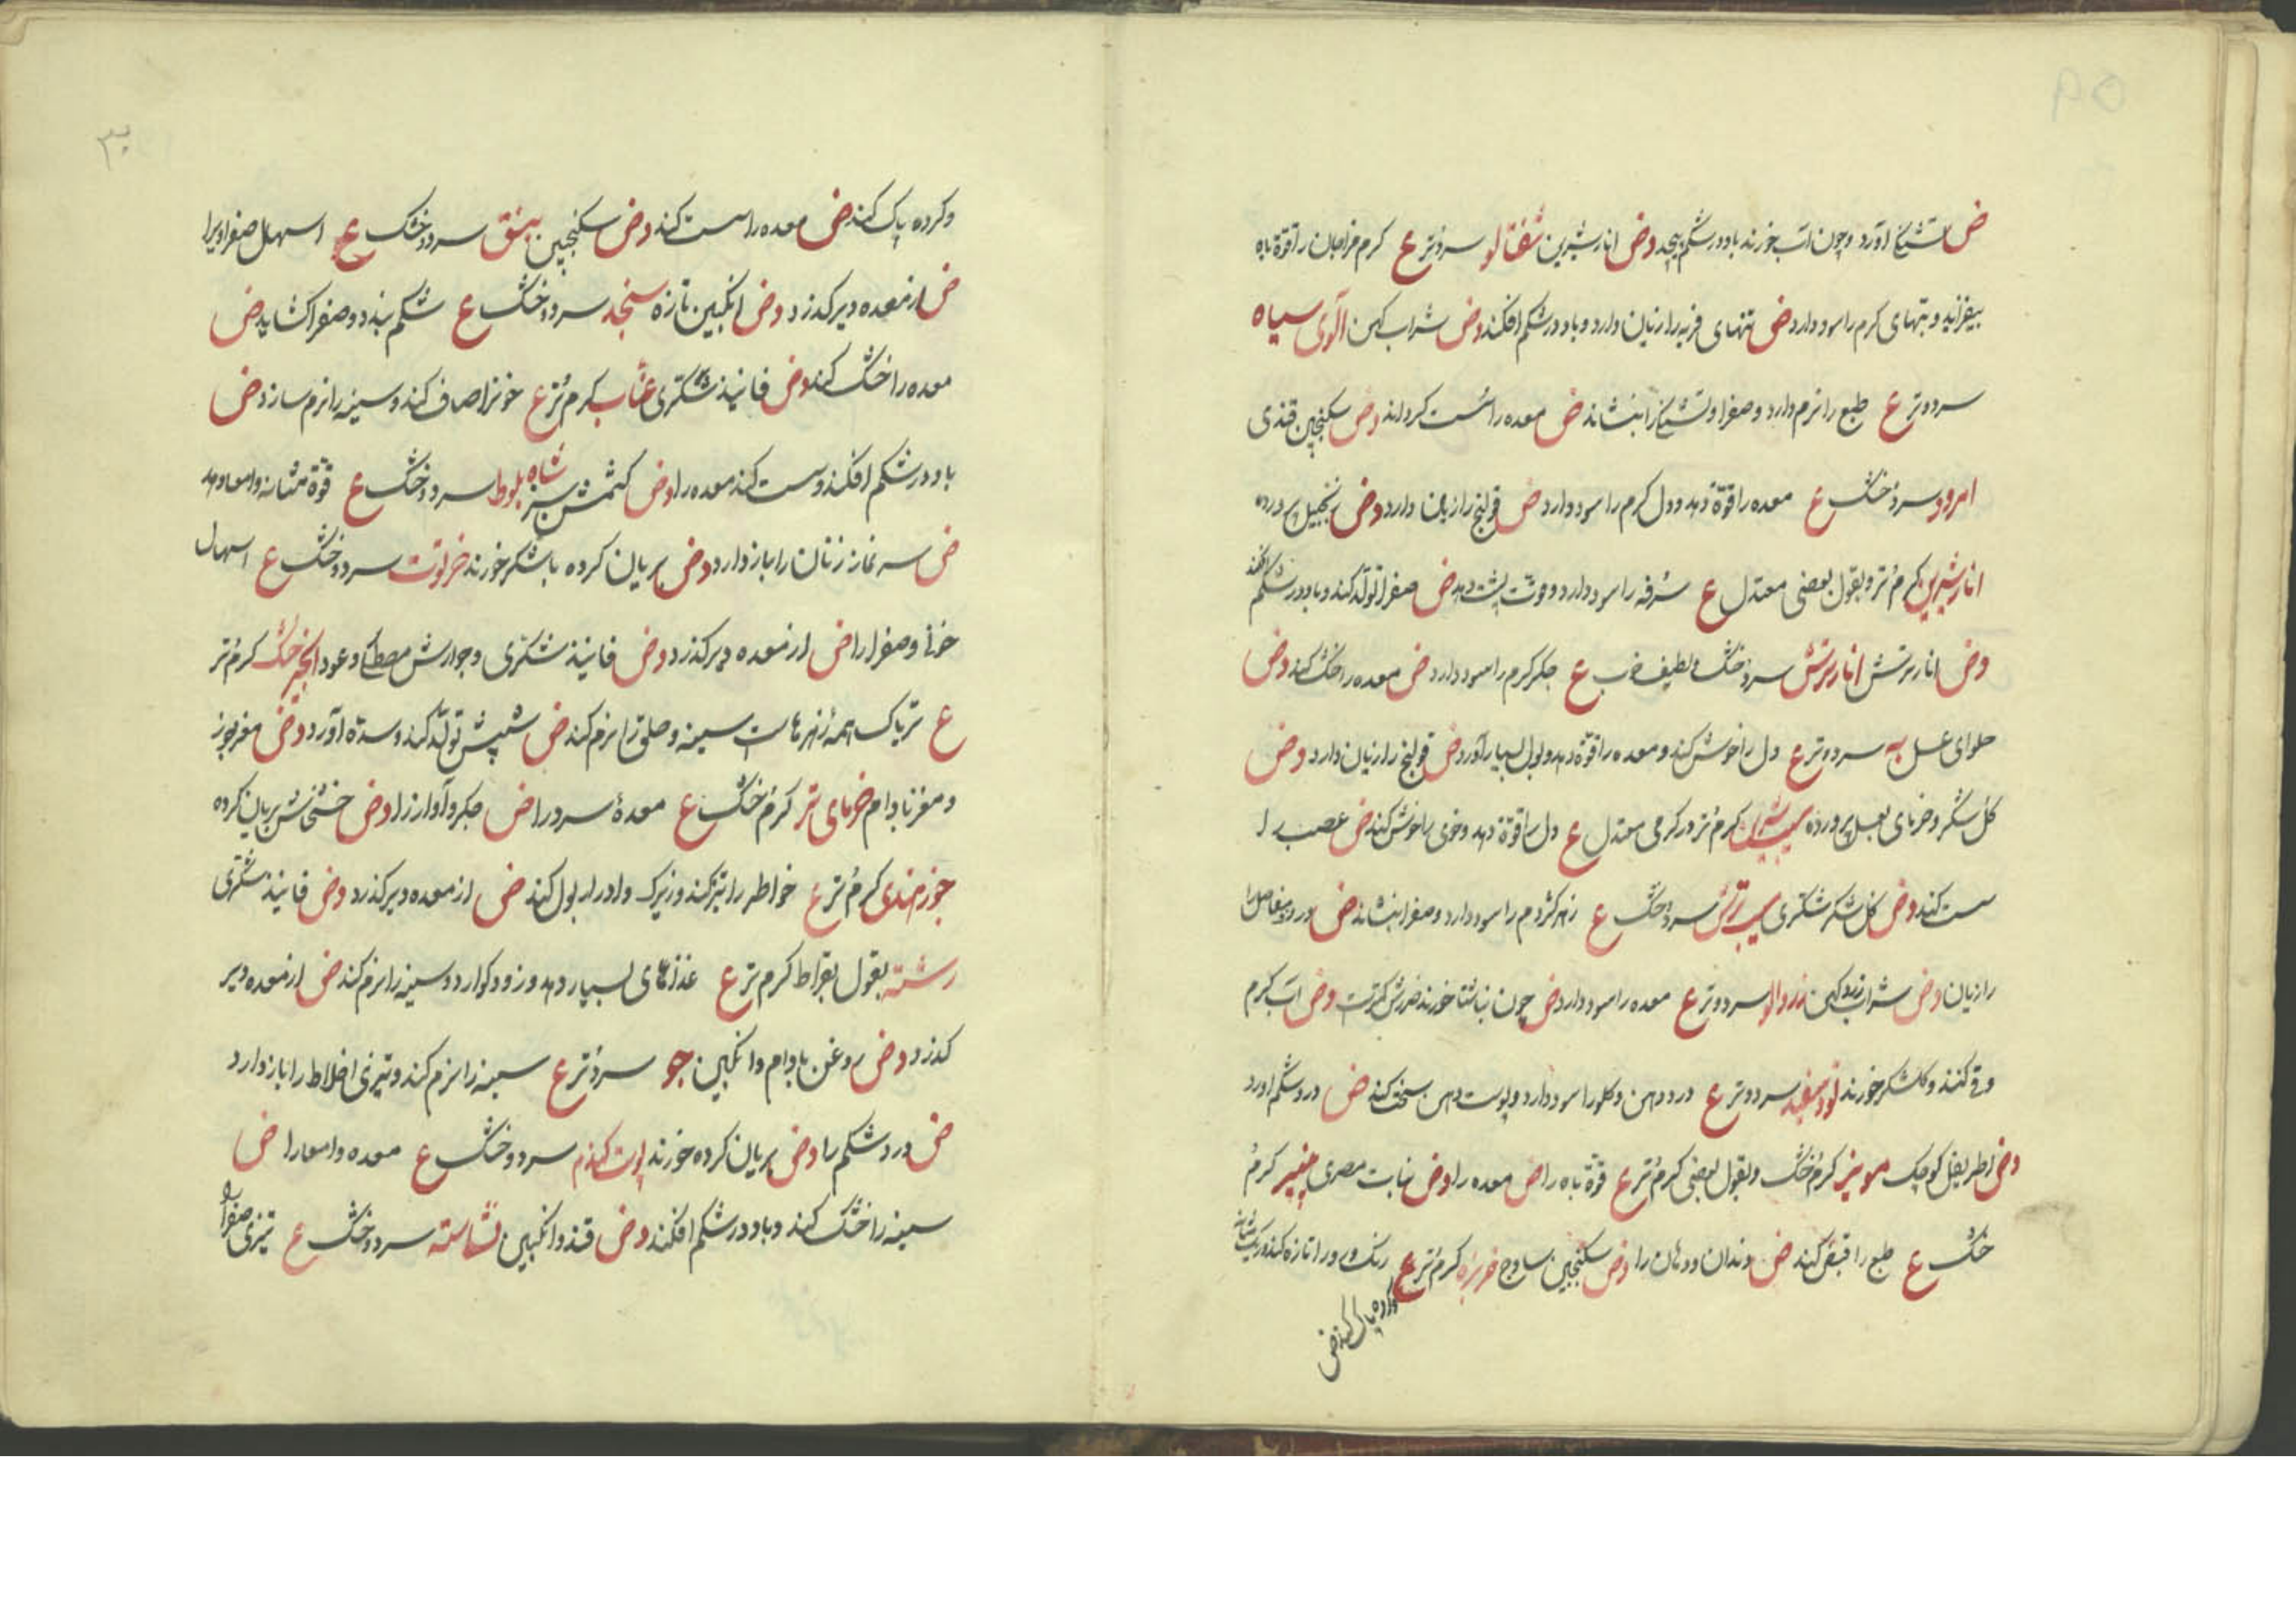 ض تشنج آورد و چون آب خورند باد در شکم پیچد دض انار شیرین شفتالو سرد تر ع کرم مزاجان را قوة باه
بیفزاید و تبهای کرم را سود دارد ض تنهای فربه را زیان دارد و باد در شکم افکند دض شراب کهن آلوی سیاه
سرد و تر ع طبع را نرم دارد و صفرا و تشنج را بنشاند ض معده را سست کرداند دض سکنجبین قندی
امرود سرد خشک ع معده را قوّة دهد و دل کرم را سود دارد ض قولنج را زیان دارد دض زنجبیل پرورده
انار شیرین کرم تر و بقول بعضی معتدل ع سُرفه را سود دارد و قوت پشت دهد ض صفرا تولّد کند و باد در شکم افکند
دض انار ترش انار ترش سرد خشک و لطیف ع جکر کرم را سود دارد ض معده را خشک کند دض
حلوای عسل به سرد و تر ع دل را خوش کند و معده را قوّة دهد و بول بسیار آورد ض قولنج را زیان دارد دض
کل شکر و خرمای بعسل پرورده سیب شیرین کرم تر و در کرمی معتدل ع دل را قوّة دهد و خوی را خوش کند ض عصب را
سست کند دض کل شکر شکری سیب ترش سرد خشک ع زهر کژدم را سود دارد و صفرا بنشاند ض درد مفاصل را
را زیان دض شراب کهن زردالو سرد و تر ع معده را سود دارد ض چون ناشتا خورند ضررش کمترست دض آب کرم
و قی کنند و کلشکر خورند تود سفید سرد و تر ع درد دهن و کلو را سود دارد و پوست دهن سخت کند ض درد شکم آورد
دض اطریفل کوچک مویز کرم خشک و بقول بعضی کرم تر ع قوّة باه را ض معده را دض نبات مصری پنیر کرم
خشک ع طبع را قبض کند ض دندان و دهان را دض سکنجبین ساوج خربزه کرم تر ع رنک رو را تازه کند و ریک مثانه
وکرده پاک کند ض
وکرده پاک کند ض معده را سست کند دض سکنجبین بینق سرد و خشک ع اسهال صفراویرا
ض از معده دیر کذرد دض انکبین تازه سنجد سرد و خشک ع شکم بندد و صفرا کشاید ض
معده را خشک کند دض فانیذ شکری عنّاب کرم تر ع خون را صاف کند و سینه را نرم سازد ض
باد در شکم افکند و سست کند معده را دض کشمش سبز شاه بلوط سرد و خشک ع قوّة مثانه و امعا دهد
ض سر نماز زنان را باز دارد دض بریان کرده با شکر خورند خرنوت سرد و خشک ع اسهال
خون و صفرا را ض از معده دیر کذرد دض فانیذ شکری و جوارش مصطکی و عود انجیر خشک کرم تر
ع تریاک همه زهرهاست سینه و حلق را نرم کند ض شپش تولّد کند و سدّه آورد دض مغز جوز
و مغز بادام خرمای تر کرم خشک ع معدهٔ سرد را ض جکر و آواز را دض خشخاش بریان کرده
جوز هندی کرم تر ع خواطر را تیز کند و زیرک و ادرار بول کند ض از معده دیر کذرد دض فانیذ شکری
رشته بقول بقراط کرم تر ع غذاهای بسیار دهد و زود کوارد و سینه را نرم کند ض از معده دیر
کذرد دض روغن بادام و انکبین جو سرد تر ع سینه را نرم کند و تیزی اخلاط را باز دارد
ض درد شکم را دض بریان کرده خورند پوت کندم سرد و خشک ع معده و امعا را ض
سینه را خشک کند و باد در شکم افکند دض قند و انکبین نشاسته سرد و خشک ع تیزی صفرا